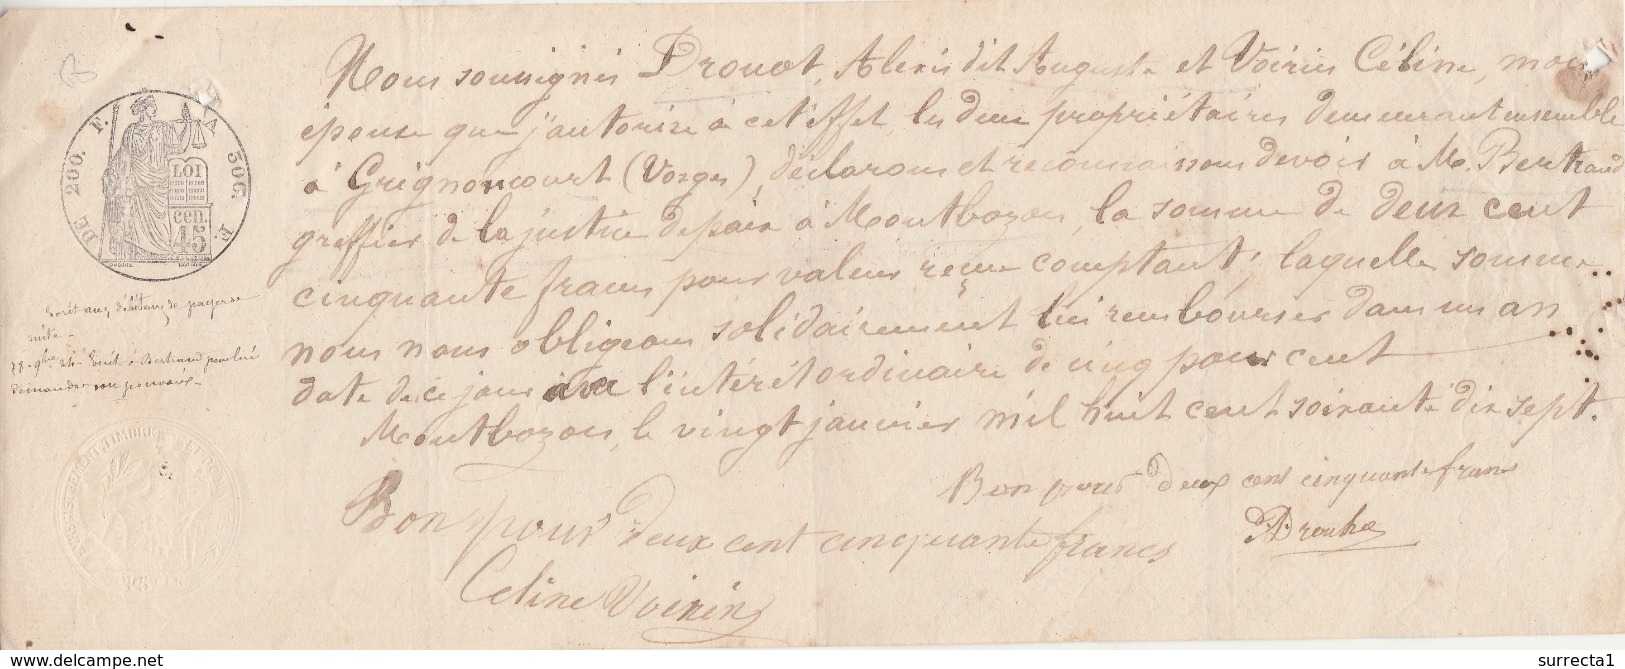 Nous soussignés Drouot, Alexis dit Auguste et Voirin Céline, mon
épouse que j'autorise à cet effet, les deux propriétaires demeurant ensemble
à Grignoncourt (Vosges), déclarons et reconnaissons devoir à M. Bertrand
greffier de la justice de paix à Montbozon, la somme de deux cent
cinquante francs pour valeur reçue comptant, laquelle somme
nous nous obligeons solidairement lui rembourser dans un an
date de ce jour avec l'intérêt ordinaire de cinq pour cent
Montbozon, le vingt janvier mil huit cent soixante dix sept.
Bon pour deux cent cinquante francs
Bon pour deux cent cinquante francs
Celine Voirin
DE 200. F. A 300. F.
LOI
cen.
45
Ecrit aux débiteurs de payer de
suite
78 - 9bre 24 - Ecrit à Bertrand pour lui
demander son pouvoir -
ENREGISTREMENT TIMBRE ET DOM
http://www.delcampe.net
surrecta1